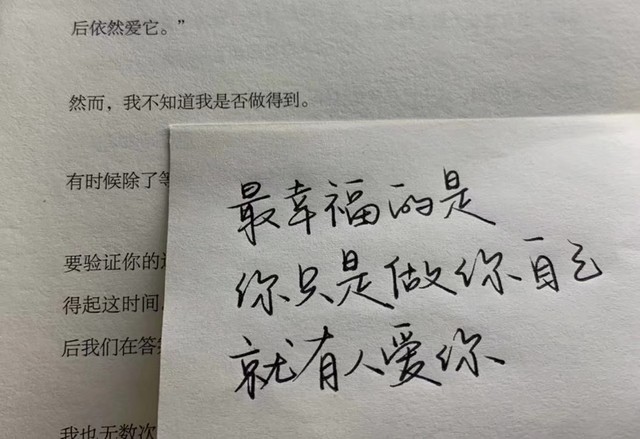 后依然爱它。”
然而，我不知道我是否做得到。
有时候除了等
要验证你的
得起这时间
后我们在答案
我也无数次
最幸福的是
你只是做你自己
就有人爱你